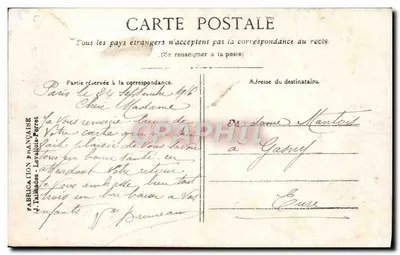 CARTE POSTALE
Tous les pays étrangers n'acceptent pas la correspondance au recto
(Se renseigner à la poste)
Partie réservée à la correspondance.
Adresse du destinataire.
Paris le 24 Septembre
Chère Madame
Je Vous remercie
Votre carte qui
fait plaisir de Vous Savoir
tous en bonne santé, en
attendant Votre retour
je vous embrasse bien tout
trois un bon baiser à Vos
enfants. Bruneau
Madame Mantois
à Gasny
Eure
CPARAMA.COM
FABRICATION FRANÇAISE
J. Tailhades - Levallois-Perret